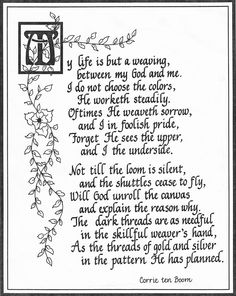 My life is but a weaving,
between my God and me.
I do not choose the colors,
He worketh steadily.
Oftimes He weaveth sorrow,
and I in foolish pride,
Forget He sees the upper,
and I the underside.
Not till the loom is silent,
and the shuttles cease to fly,
Will God unroll the canvas
and explain the reason why.
The dark threads are as needful
in the skillful weaver's hand,
As the threads of gold and silver
in the pattern He has planned.
Corrie ten Boom